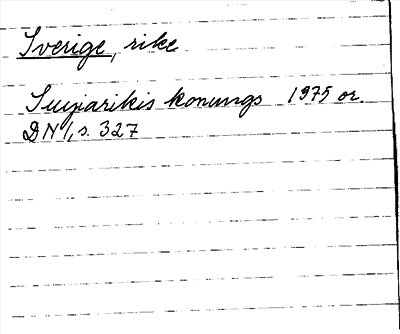 Sverige, rike
Suiþiarikis konungs 1375 or.
DN 1, s. 327